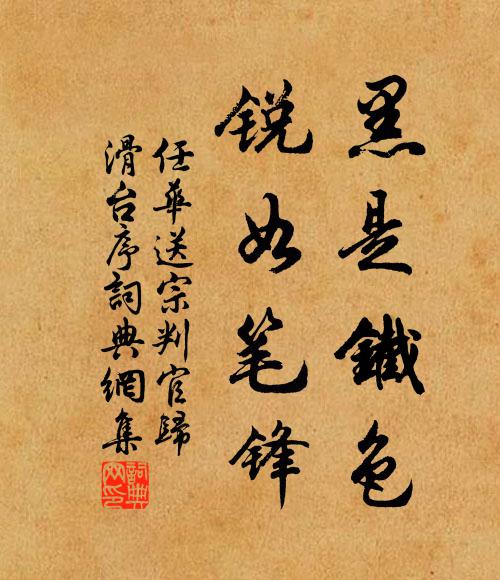 黑是鐵色
锐如笔锋
任華送宗判官歸
滑台序詞典網集
詞典网印